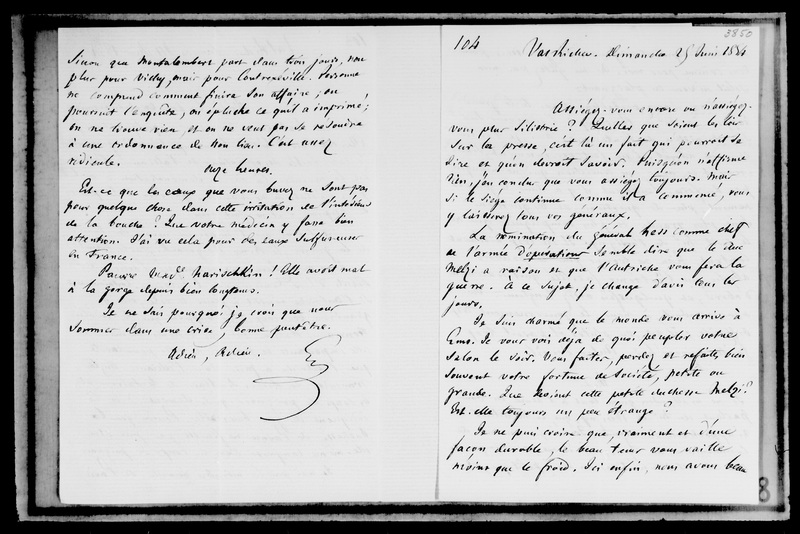 Sinon que Montalembert part dans trois jours, non
plus pour Vichy, mais pour Contrexéville. Personne
ne comprend comment finira son affaire ; on
poursuit l'enquête, on épluche ce qu'il a imprimé ;
on ne trouve rien et on ne veut pas se résoudre
à une ordonnance de non lieu. C'est assez
ridicule.
onze heures.
Est-ce que les eaux que vous buvez ne sont pas
pour quelque chose dans cette irritation de l'intérieur
de la bouche ? Que votre médecin y fasse bien
attention. J'ai vu cela pour des eaux sulfureuses
en France.
Pauvre Mad. Narischkin ! Elle avoit mal
à la gorge depuis bien longtems.
Je ne sais pourquoi je crois que nous
sommes dans une crise, bonne peut-être.
Adieu, Adieu.
3850
104
Val Richer. Dimanche 25 Juin 1854
Assiégez-vous encore ou n'assiégez-
vous plus Silistrie ? Quelles que soient les lois
sur la presse, c'est là un fait qui pourroit se
dire et qu'on devroit savoir. Puisqu'on n'affirme
rien, j'en conclus que vous assiégez toujours. Mais
si le siège continue comme il a commencé, vous
y laisserez tous vos généraux.
La nomination du général Hess comme chef
de l'armée d'opération semble dire que le duc
Melzi a raison et que l'Autriche vous fera la
guerre. À ce sujet, je change d'avis tous les
jours.
Je suis charmé que le monde vous arrive à
Ems. Je vous vois déjà de quoi peupler votre
salon le soir. Vous faites, perdez et refaites bien
souvent votre fortune de Société, petite ou
grande. Que devient cette petite duchesse Melzi ?
Est-elle toujours un peu étrange ?
Je ne puis croire que, vraiment et d'une
façon durable, le beau tems vous vaille
moins que le froid. Ici enfin, nous avons beau
8